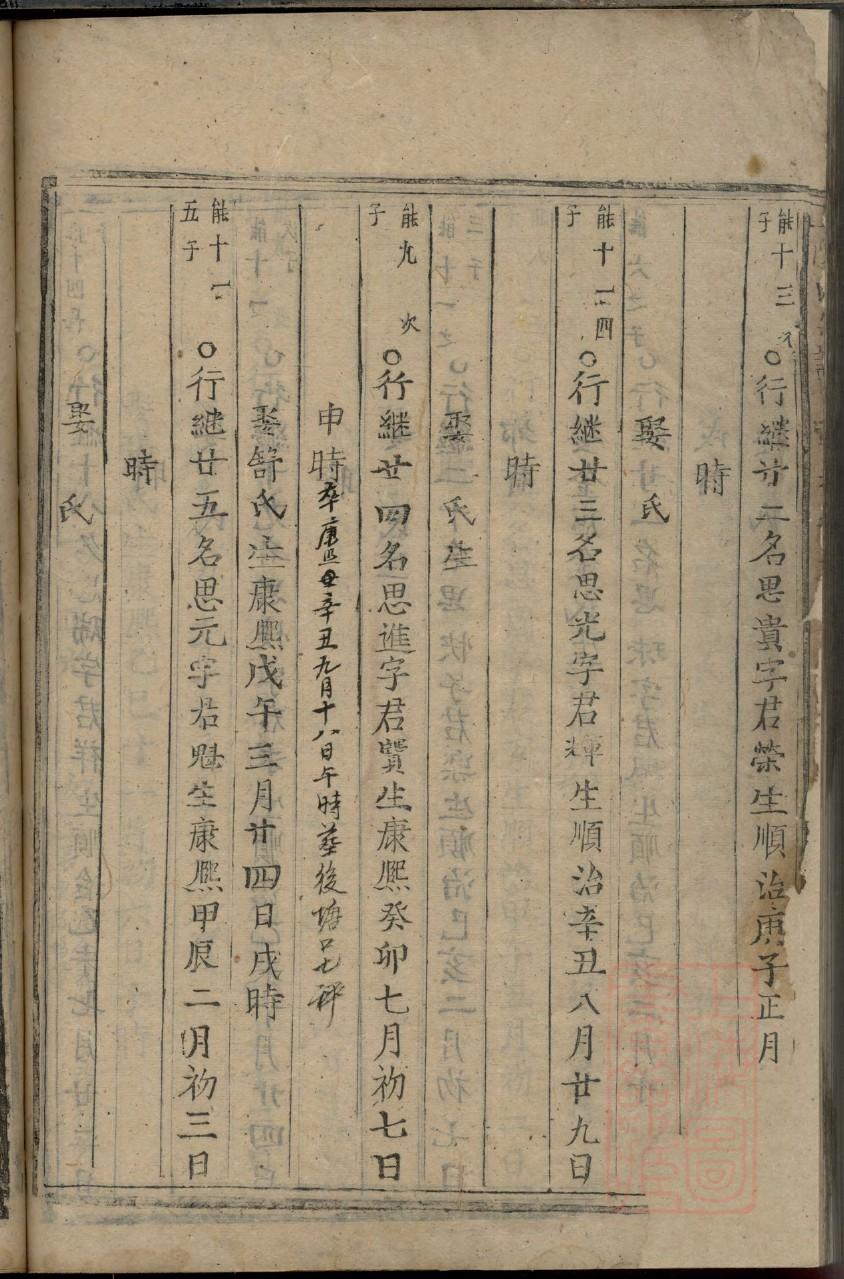 能十三
子
○行継廿二名思貴字君榮生順治庚子正月
時
娶 氏
能十二四
子
○行継廿三名思光字君輝生順治辛丑八月廿九日
時
娶 氏
能九 次
子
○行継廿四名思進字君賢生康熈癸卯七月初七日
申時卒康熙辛丑九月十八日午時葬後塘
娶舒氏生康熈戊午三月廿四日戌時
能十
五子
○行継廿五名思元字君魁生康熈甲辰二月初三日
時
娶 氏